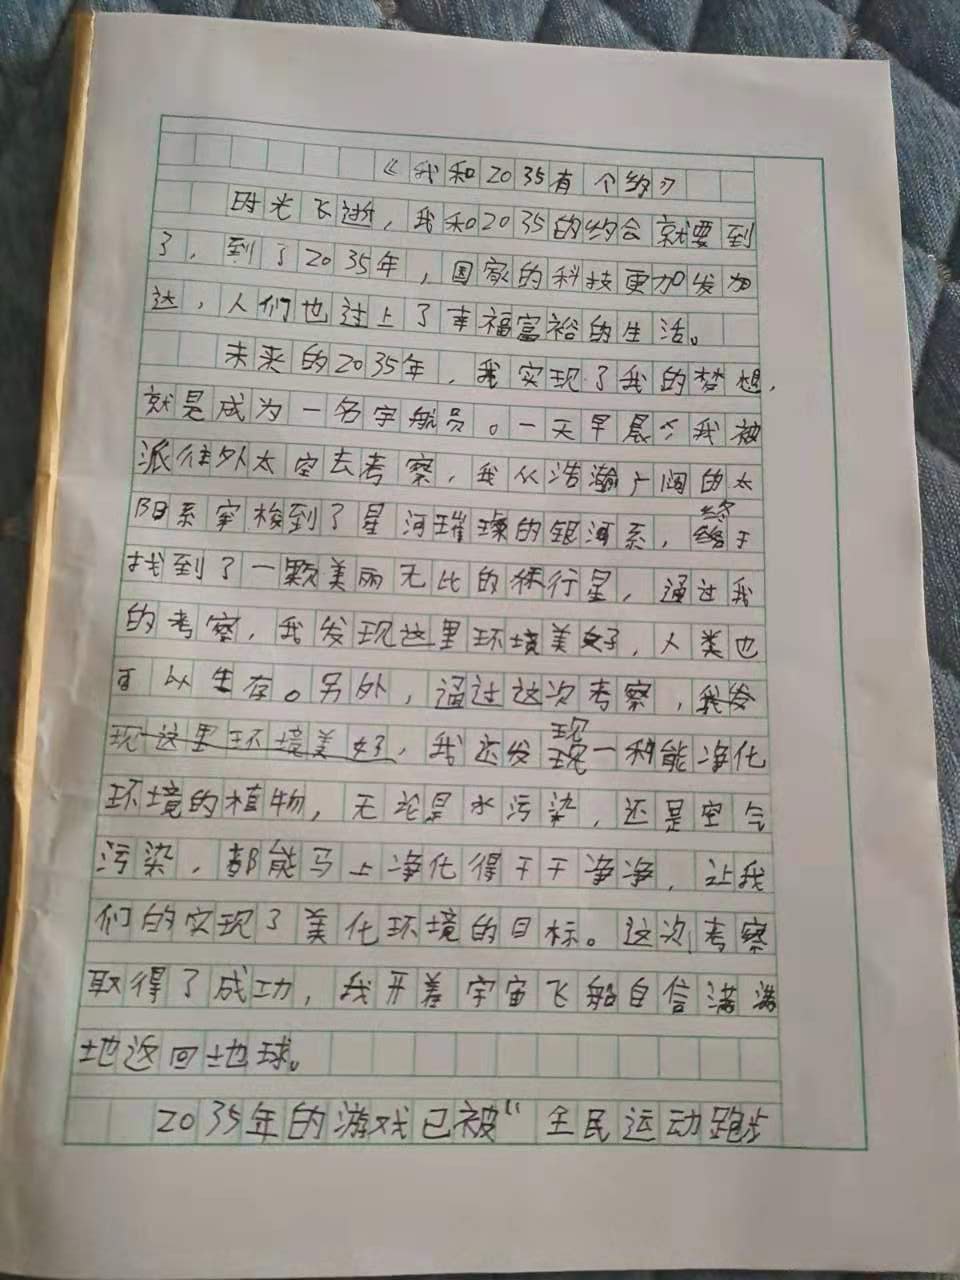 《我和2035有个约》
时光飞逝，我和2035的约会就要到
了，到了2035年，国家的科技更加发加
达，人们也过上了幸福富裕的生活。
未来的2035年，我实现了我的梦想，
就是成为一名宇航员。一天早晨，我被
派往外太空去考察，我从浩瀚广阔的太
阳系穿梭到了星河璀璨的银河系，终于
找到了一颗美丽无比的行星，通过我
的考察，我发现这里环境美好，人类也
可以生存。另外，通过这次考察，我发
现这里环境美好，我还发现一种能净化
环境的植物，无论是水污染，还是空气
污染，都能马上净化得干干净净，让我
们的实现了美化环境的目标。这次考察
取得了成功，我开着宇宙飞船自信满满
地返回地球。
2035年的游戏已被“全民运动跑步